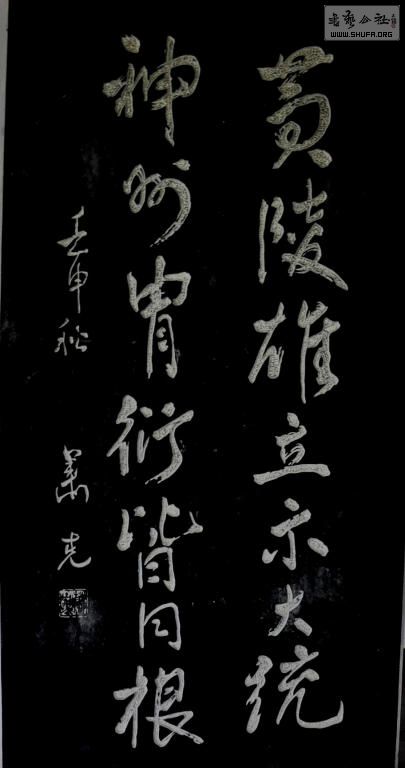 黄陵雄立示大统
神州胄衍皆同根
壬申秋
萧克
書藝公社
WWW.SHUFA.ORG